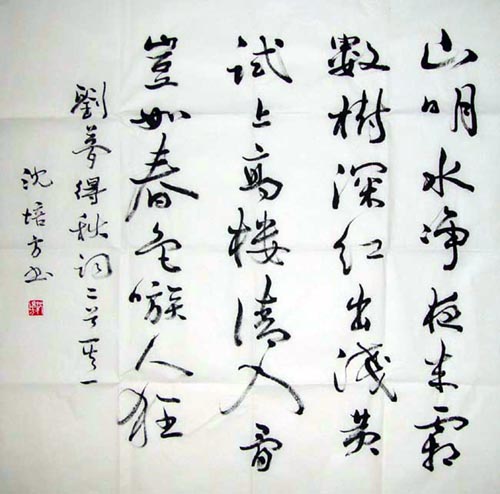 山明水净夜来霜
数樹深红出浅黄
试上高楼清入骨
豈如春色嗾人狂
劉夢得秋词二首其一
沈培方书